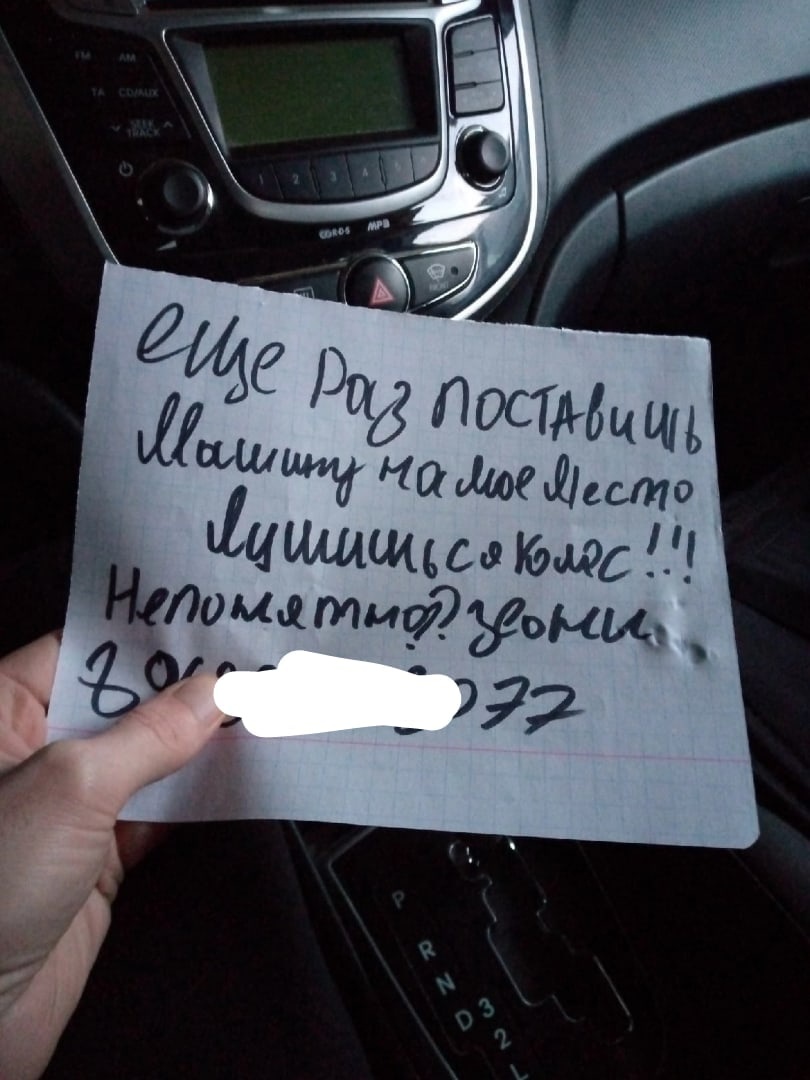 FM AM
TA CD/AUX
SEEK
TRACK
1 2 3 4 5 6
MP3
еще Раз поставишь
Машину на мое Место
Лушишься колес!!!
Непонятно? звони
077
P
R
N
D 3
2
L